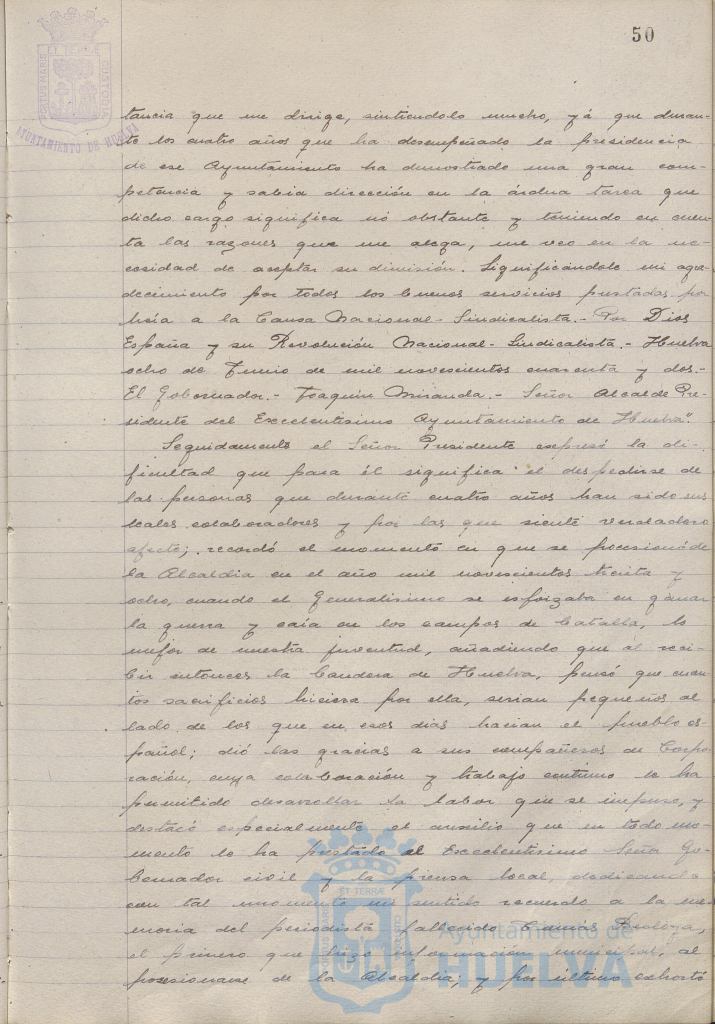 50
PORTUS MARIS ET TERRAE CUSTODIA
AYUNTAMIENTO DE HUELVA
tancia que me dirige, sintiendolo mucho, yá que duran-
te los cuatro años que ha desempeñado la presidencia
de ese Ayuntamiento ha demostrado una gran com-
petencia y sabia dirección en la árdua tarea que
dicho cargo significa nó obstante y teniendo en cuen-
ta las razones que me alega, me veo en la ne-
cesidad de aceptar su dimisión. Significándole mi agra-
decimiento por todos los buenos servicios prestados por
hía a la Causa Nacional-Sindicalista.- Por Dios
España y su Revolución Nacional-Sindicalista.- Huelva
ocho de Junio de mil novecientos cuarenta y dos.-
El Gobernador.- Joaquín Miranda.- Señor Alcalde Pre-
sidente del Excelentísimo Ayuntamiento de Huelva".
Seguidamente el Señor Presidente expresó la di-
ficultad que para él significa el despedirse de
las personas que durante cuatro años han sido sus
leales colaboradores y por las que siente verdadero
afecto; recordó el momento en que se posesionó de
la Alcaldia en el año mil novescientos treinta y
ocho, cuando el Generalísimo se esforzaba en ganar
la guerra y caía en los campos de batalla, lo
mejor de nuestra juventud, añadiendo que al reci-
bir entonces la bandera de Huelva, pensó que cuan-
tos sacrificios hiciera por ella, serian pequeños al
lado de los que en esos dias hacian el pueblo es-
pañol; dió las gracias a sus compañeros de Corpo-
ración, cuya colaboración y trabajo contínuo le ha
permitido desarrollar la labor que se impuso, y
destacó especialmente el auxilio que en todo mo-
mento le ha prestado el Excelentísimo Señor Go-
bernador civil y la prensa local, dedicando
con tal momento un sentido recuerdo a la me-
moria del periodista fallecido
el primero que hizo información municipal, al
posesionarse de la Alcaldia; y por último exhortó
Ayuntamiento de
HUELVA